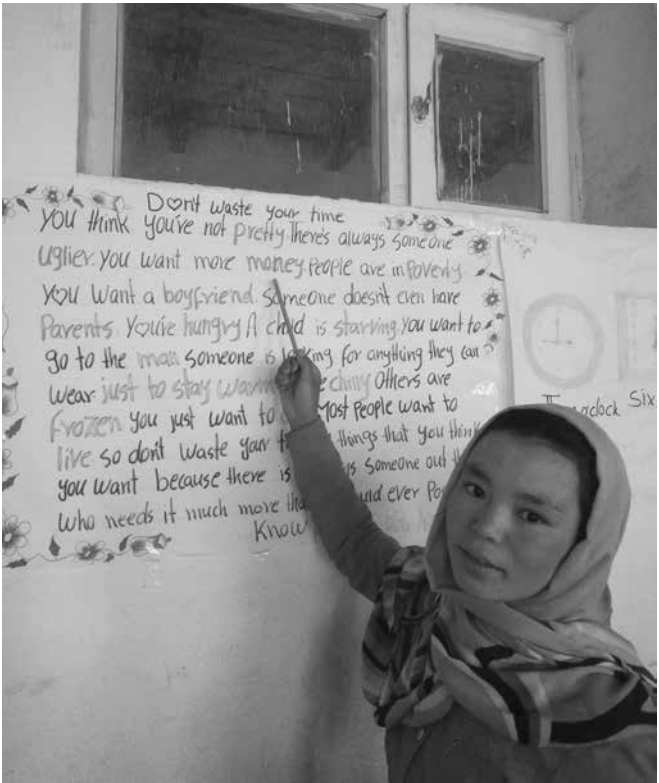 Don't waste your time
You think you've not pretty There's always someone
uglier. you want more money. people are in Poverty
you want a boyfriend. Someone doesn't even have
Parents. You're hungry A child is starving. You want to
go to the man someone is looking for anything they can
wear just to stay warm chilly Others are
frozen you just want to Most People want to
live so don't waste your things that you think
you want because there is someone out
who needs it much more ever
Know
clock Six